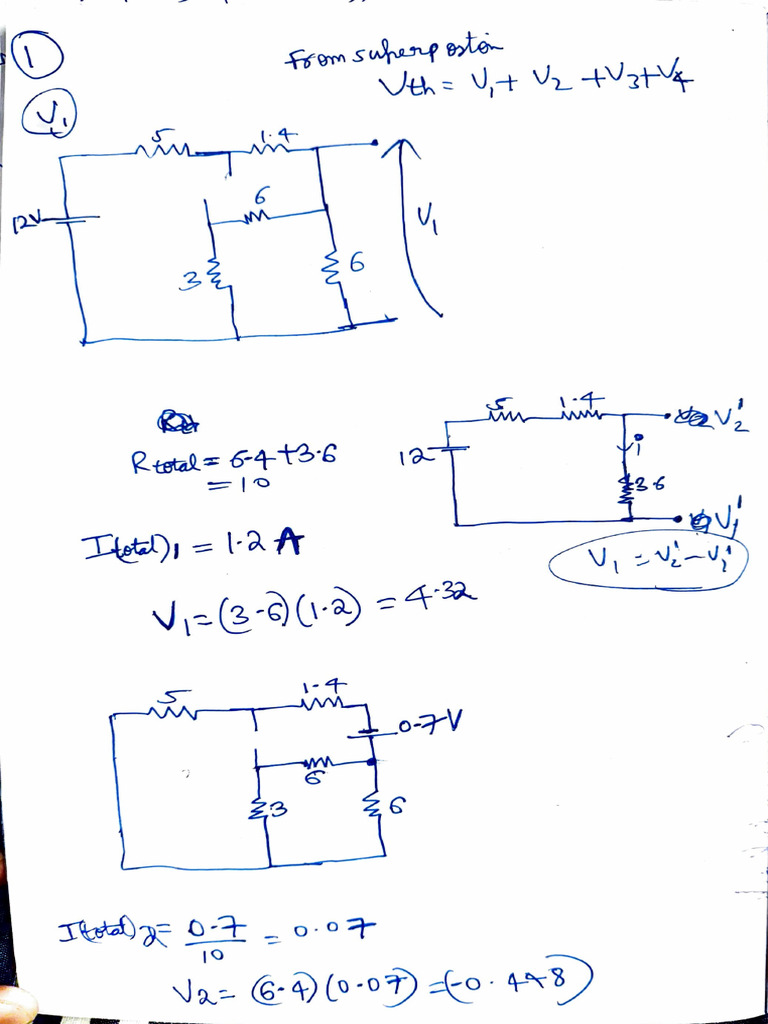 1
From superposition
Vth = V1 + V2 + V3 + V4
V1
5
1.4
12V
6
3
6
V1
Rtotal = 6.4 + 3.6
= 10
5
1.4
V2'
12
i
3.6
V1'
V1 = V2' - V1'
I(total)1 = 1.2 A
V1 = (3.6)(1.2) = 4.32
5
1.4
0.7V
6
3
6
I(total)2 = 0.7/10 = 0.07
V2 = (6.4)(0.07) = (-0.448)